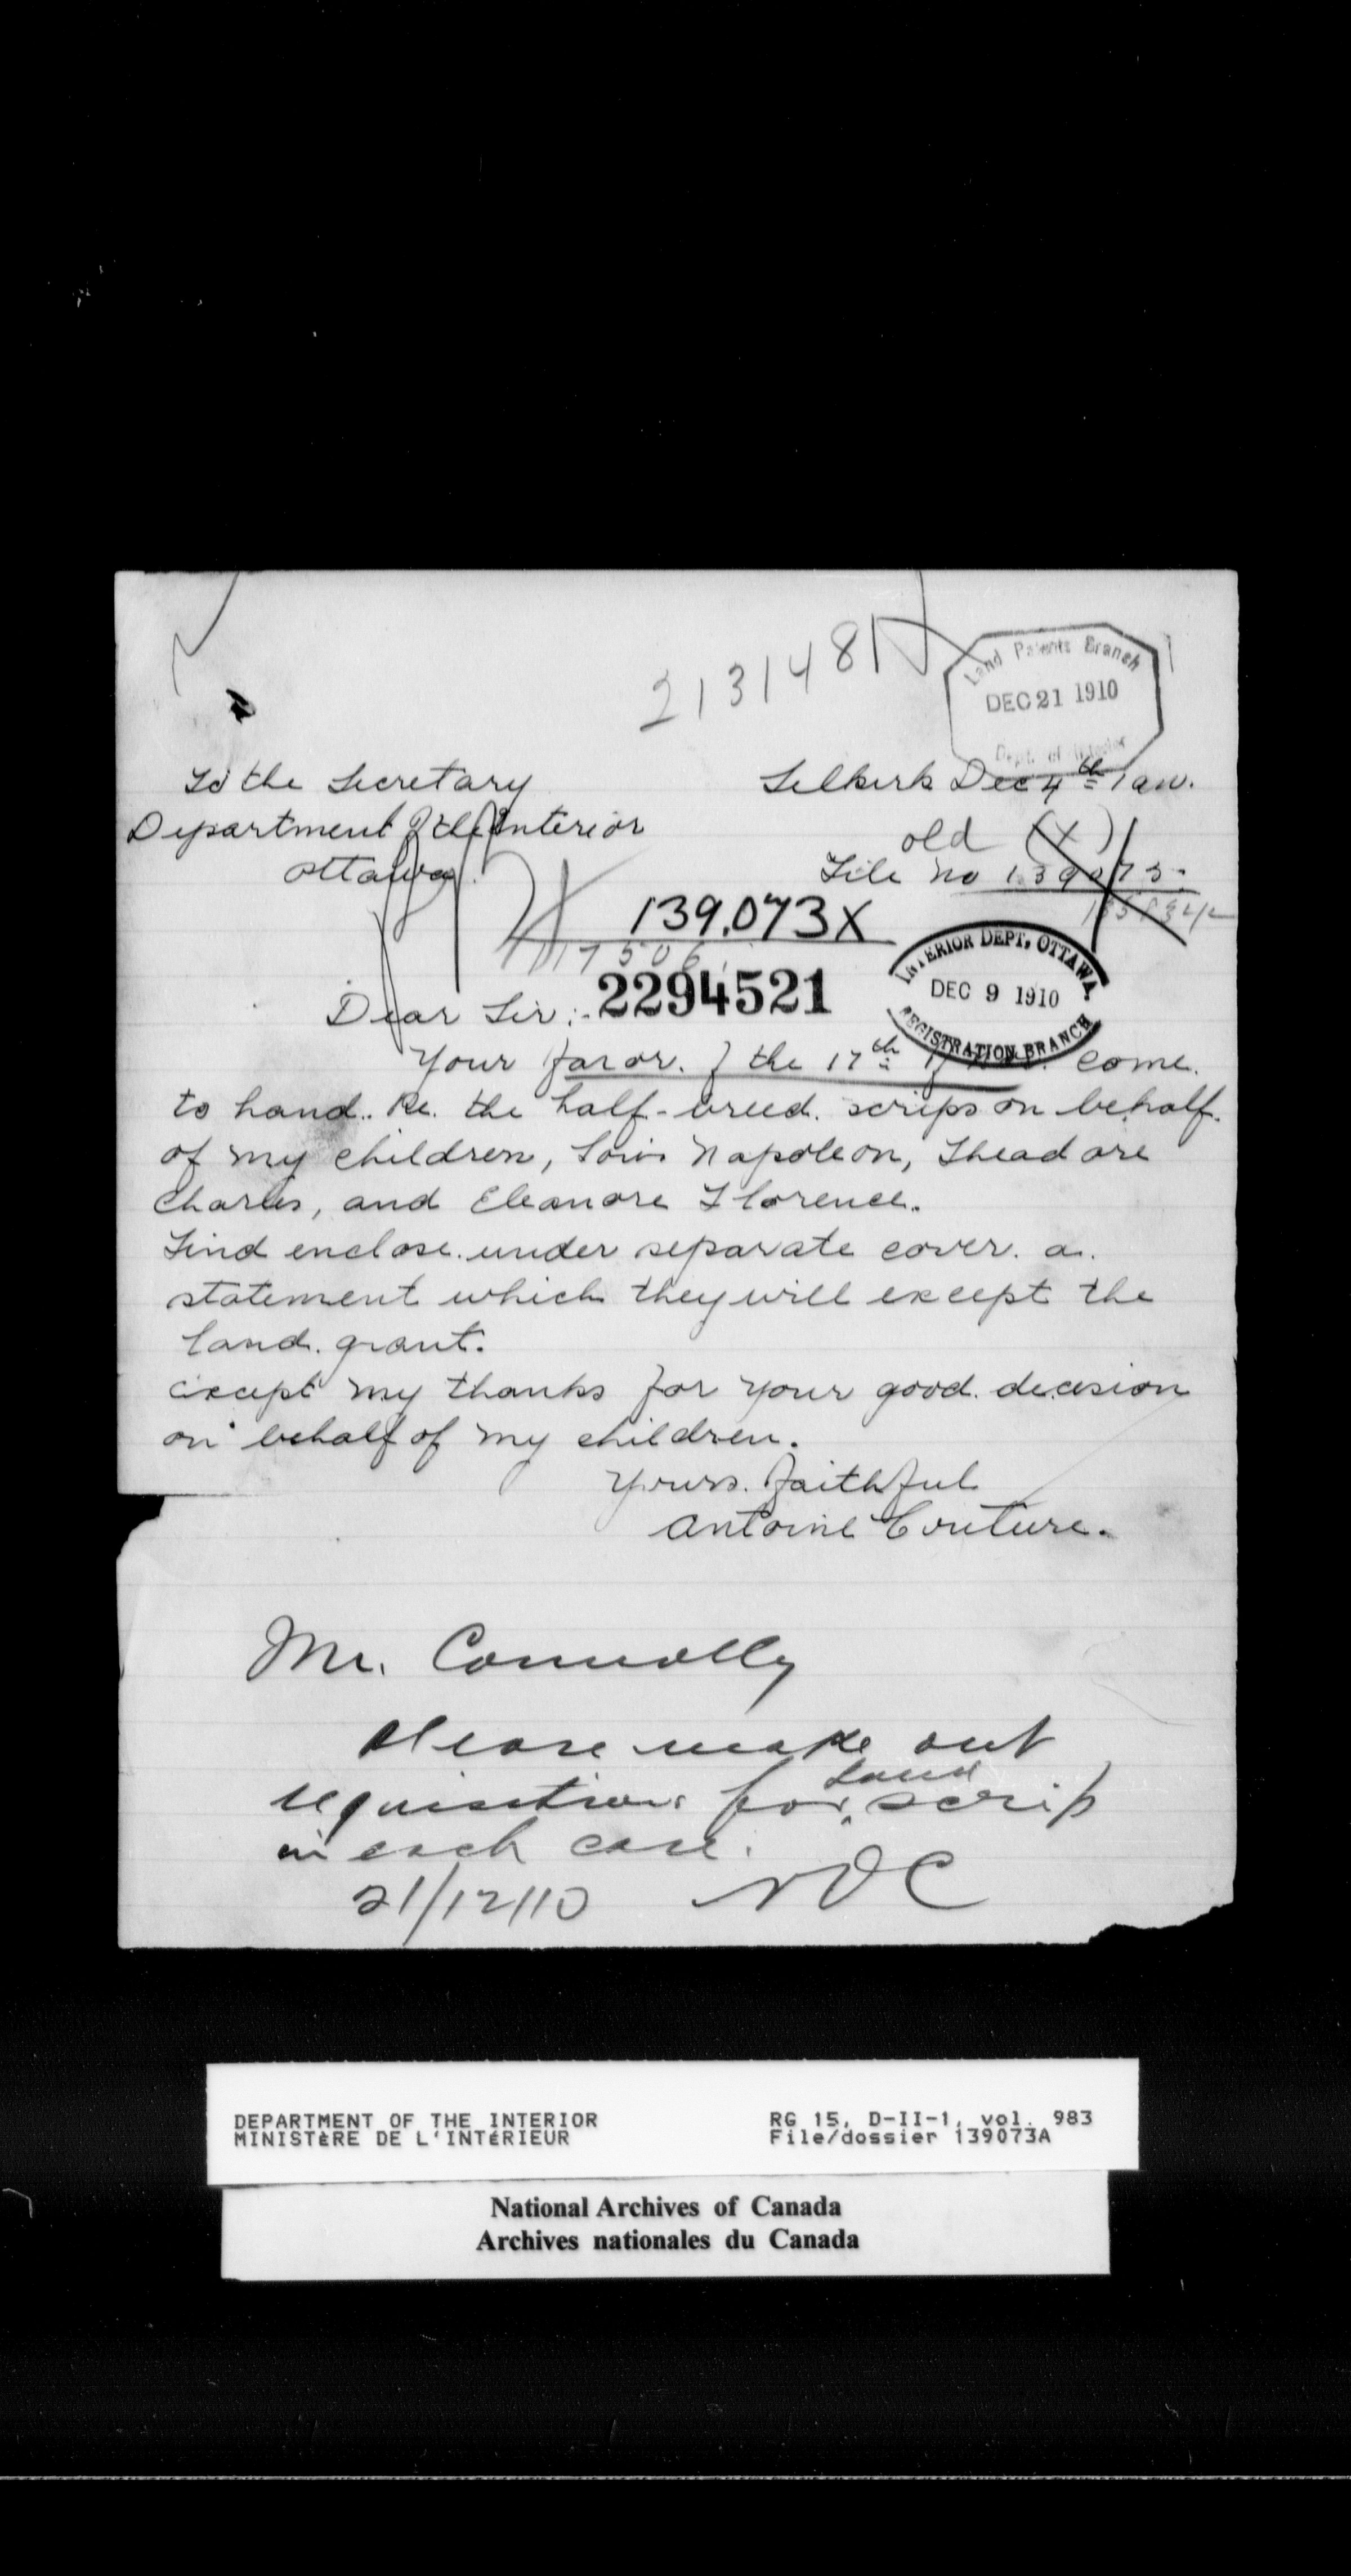 2131481
Land Patents Branch
DEC 21 1910
Dept. of Interior
To the Secretary
Selkirk Dec 4th 1910.
Department of the Interior
old (X)
Ottawa.
File No 139073.
139.073X
117506
2294521
INTERIOR DEPT. OTTAWA
DEC 9 1910
REGISTRATION BRANCH
Dear Sir:-
Your favor. of the 17th of come.
to hand.. Re. the half-breed. scrips on behalf.
of my children, Louis Napoleon, Theadore
Charles, and Eleanore Florence.
Find enclose. under separate cover. a.
statement which they will except the
land. grant.
except my thanks for your good. decesion
on behalf of my children.
Yours. faithful
Antoine Couture.
Mr. Connolly
Please make out
requisitions for land scrip
in each case.
21/12/10 NOC
DEPARTMENT OF THE INTERIOR
MINISTÈRE DE L'INTÉRIEUR
RG 15, D-II-1, vol. 983
File/dossier 139073A
National Archives of Canada
Archives nationales du Canada